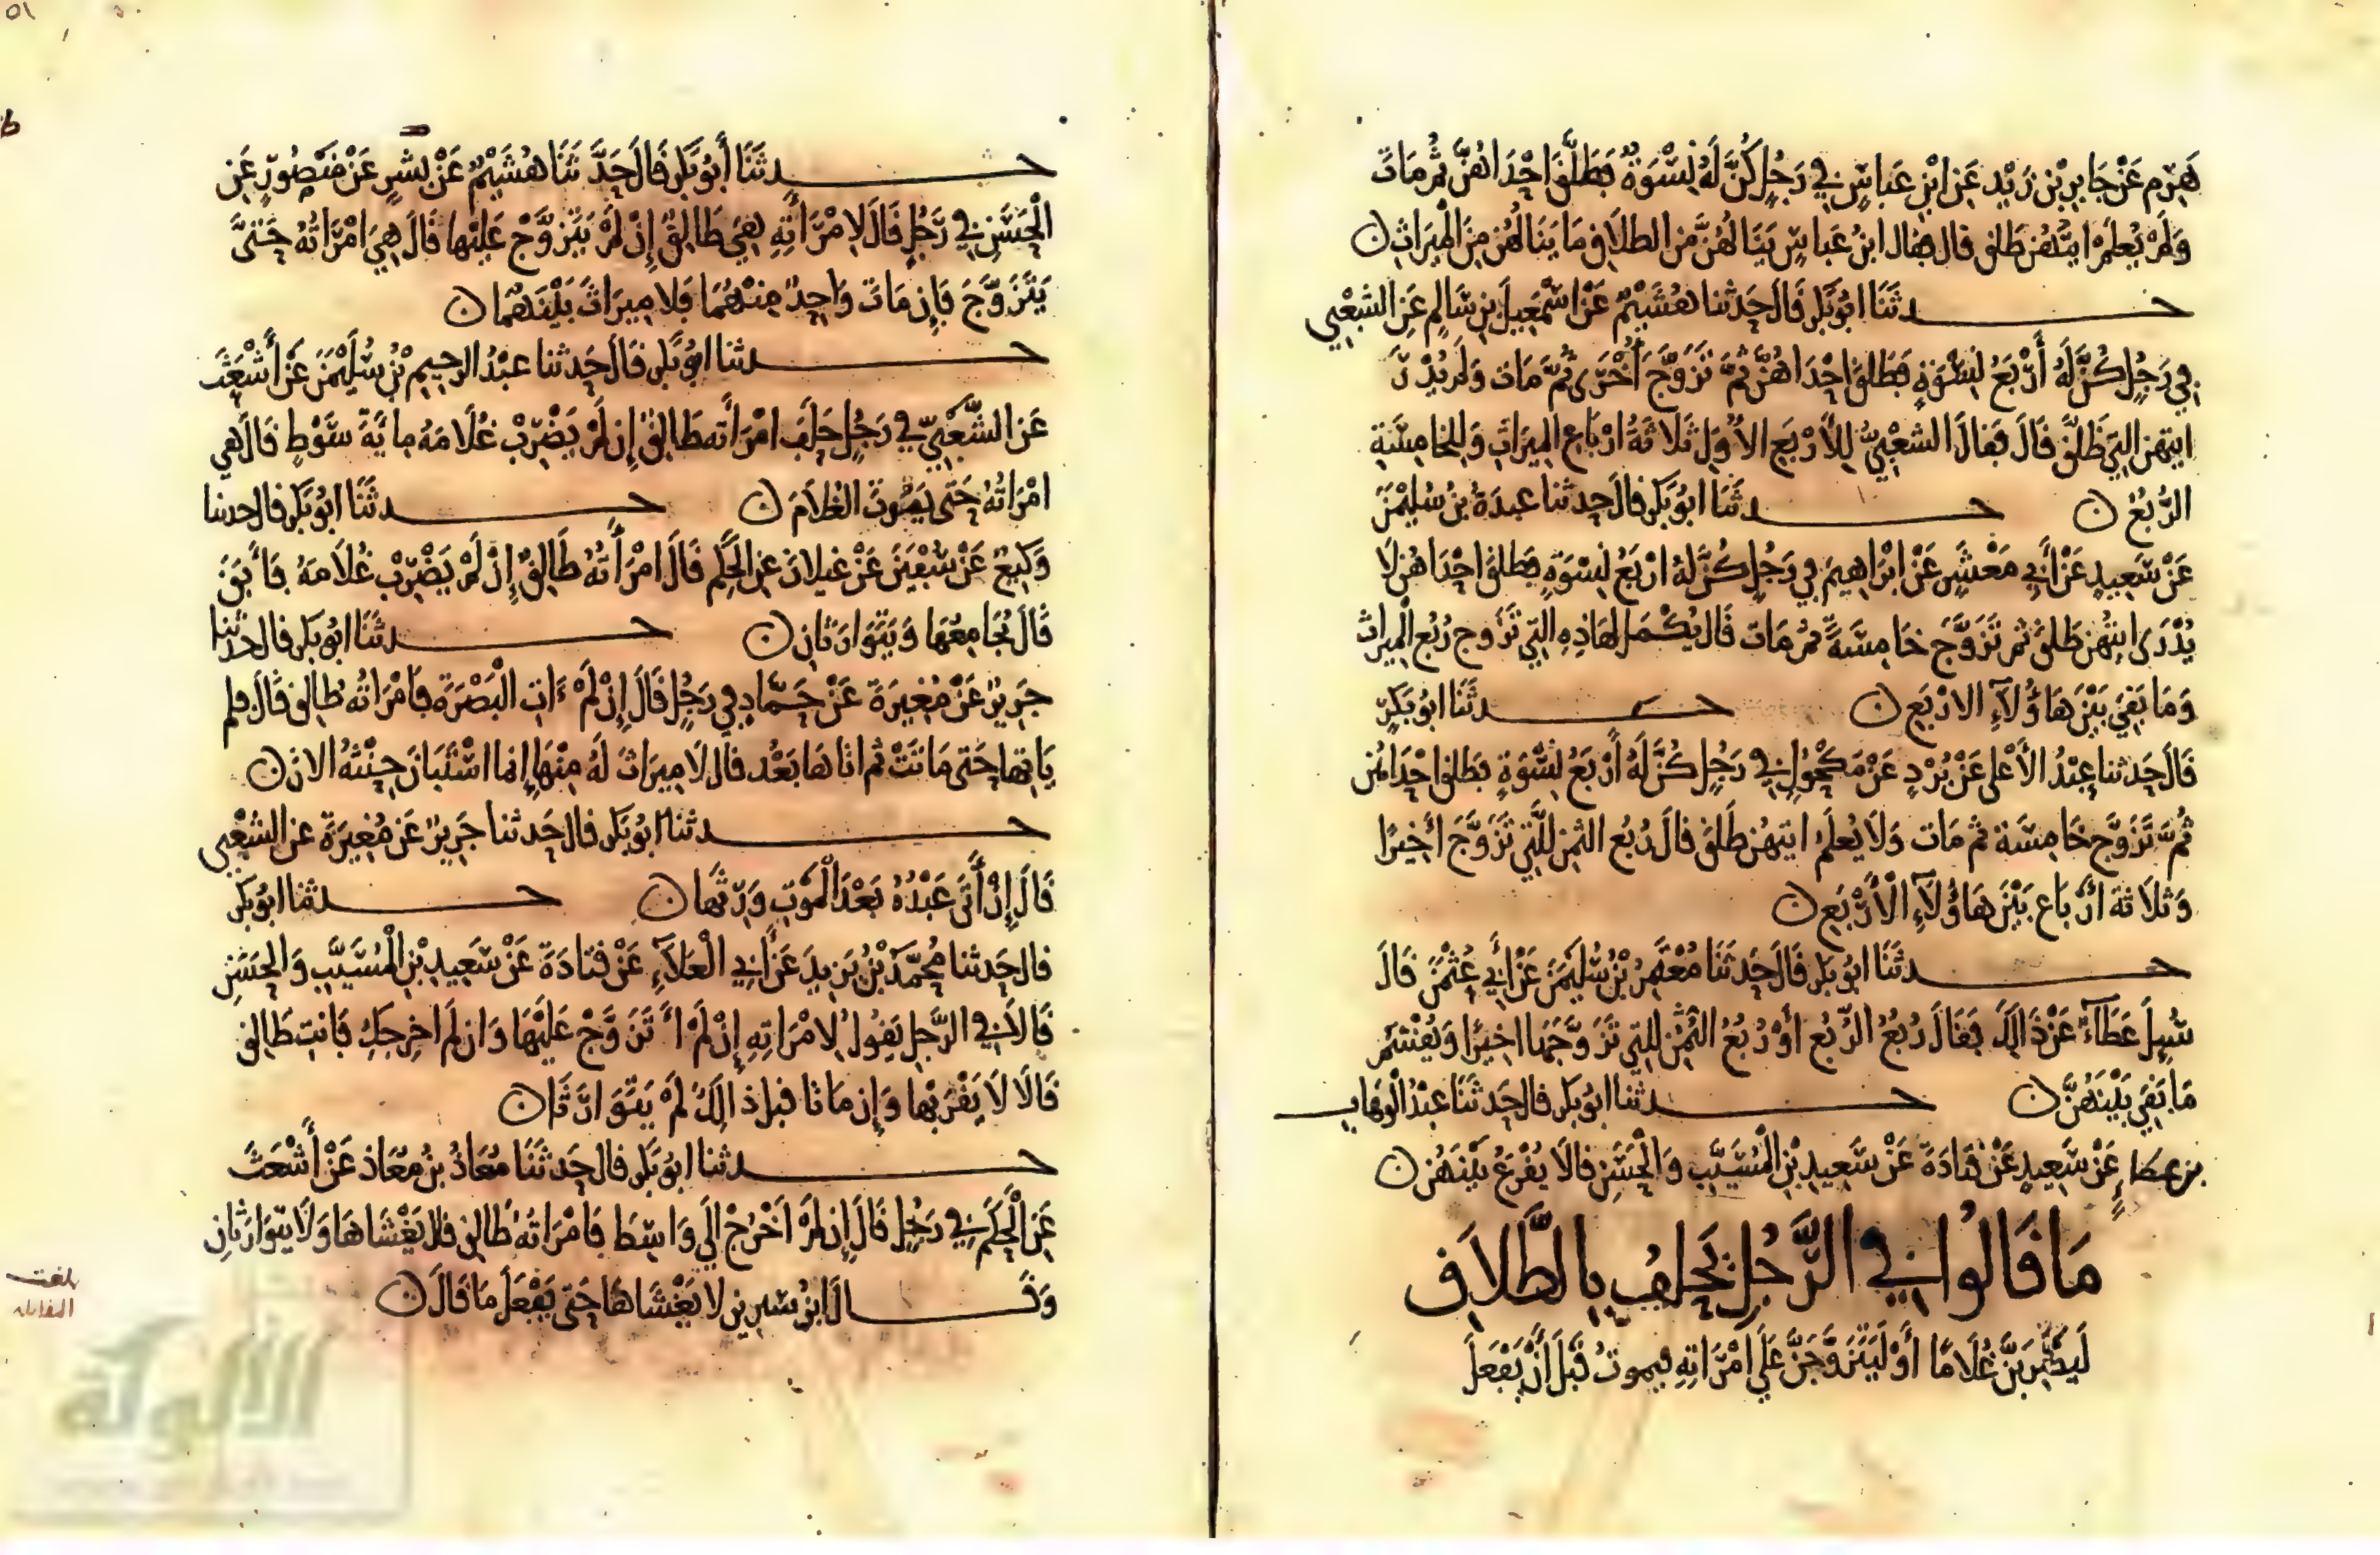 هَرِمٍ عَنْ جَابِرِ بْنِ زَيْدٍ عَنِ ابْنِ عَبَّاسٍ فِي رَجُلٍ كُنَّ لَهُ نِسْوَةٌ فَطَلَّقَ إِحْدَاهُنَّ ثُمَّ مَاتَ
وَلَمْ يُعْلَمْ أيتُهُنَّ طَلق قال فقال ابنُ عَبَّاسٍ يَنَالُهُنَّ مِنَ الطلَاق مَا يَنَالُهُنَّ مِنَ الْمِيرَاثِ ن
حدثَنَا ابُو بَكر قَالَ حَدثنا هُشَيْمٌ عَنْ اسْمَعِيلَ بْنِ سَالِمٍ عَنِ الشعْبِي
فِي رَجُلٍ كُنَّ لَهُ أَرْبَعُ نِسْوَةٍ فَطَلقَ إحْدَاهُنَّ ثُمَّ تَزَوَّجَ أُخْرَى ثُمَّ مَاتَ وَلَمْ يُدْرَ
ايتهن التِي طَلَّقَ قَالَ فَقَالَ الشعْبِيُّ لِلْأَرْبَعِ الأُوَلِ ثَلَاثَةُ ارْبَاعِ الْمِيرَاثِ وَلِلخَامِسَةِ
الرُّبُعُ ن حدثَنَا ابُو بَكر قالَ حدثنا عبدَةُ بنُ سُلَيْمَنَ
عَنْ سَعِيدٍ عَنْ أَبِي مَعْشَرٍ عَنْ ابْرَاهِيمَ فِي رَجُلٍ كُنَّ لَهُ ارْبَعُ نِسْوَةٍ فطلق احْدَاهُن لَا
يُدْرَى ايتُهُن طَلقَ ثم تَزَوَّجَ خَامِسَةً ثمّ مَاتَ قَالَ يُكْمَل لِهَاذِهِ التِي تَزَوج رُبُع الْمِيرَاث
وَمَا بَقِيَ بَيْنَ هَاؤُلآءِ الارْبَعِ ن حدثَنَا ابُو بَكرٍ
قَالَ حَدثنا عبْدُ الأَعْلى عَنْ بُرْدٍ عَنْ مَكْحُولٍ فِي رَجُلٍ كُنَّ لَهُ أَرْبَعُ نِسْوَةٍ فطَلق احْدَاهُن
ثُمَّ تَزَوَّج خَامِسَة ثم مَات وَلَا يُعلَمُ ايتهن طَلقَ قالَ رُبُع الثمن لِلَّتِي تَزَوَّجَ أخِيرًا
وَثَلَاثَة أَرْبَاع بَيْنَ هَاؤُلَآءِ الْأَرْبَعِ ن
حدثَنَا ابُو بَكر قَالَ حَدثَنَا مُعْتَمِرُ بْنُ سُلَيْمَنَ عَنْ أَبِي عُثْمَنَ قَالَ
سُئِلَ عَطَآءٌ عَنْ ذَالِكَ فَقَالَ رُبُعُ الرُّبُع أَوْ رُبُعُ الثمُنِ لِلتِي تَزَوَّجَهَا اخِيرًا وَيُقْتسَمُ
مَا بَقِيَ بَيْنَهُنَّ ن حدثنا ابُو بَكر قال حَدثَنَا عبْدُ الْوهَّاب
بن عطا عَنْ سَعِيدٍ عَنْ قتَادَةَ عَنْ سَعِيدِ بْنِ الْمُسَيَّبِ وَالْحَسَنِ قالَا يُقْرَعُ بَيْنَهُن ن
مَا قَالُوا فِي الرَّجُلِ يَحْلِفُ بِالطَّلَاقِ
لَيَضْرِبَنَّ غُلَامًا أَوْ لَيَتَزَوَّجَنَّ عَلَى امْرَأتِهِ فيموتُ قَبْلَ أَنْ يَفْعَلَ
حدثَنَا أَبُو بَكر قَالَ حَدَّثَنَا هُشَيْمٌ عَنْ بشْرٍ عَنْ مَنْصُورٍ عَنِ
الْحَسَنِ فِي رَجُلٍ قَالَ لِامْرَأَتِهِ هِيَ طَالِقٌ إِنْ لَمْ يَتَزَوَّجْ عَلَيْهَا قَالَ هِيَ امْرَأتُهُ حَتَّى
يَتَزَوَّجَ فَإِن مَاتَ وَاحِدٌ مِنْهُمَا فَلا مِيرَاثَ بَيْنَهُمَا ن
حدثنا ابُو بَكر قَالَ حَدثنا عبْدُ الرحِيمِ بْنُ سُلَيْمَنَ عَنْ أَشْعَثَ
عَنِ الشَّعْبِيِّ فِي رَجُلٍ حَلَفَ امْرَأَته طَالِقٌ إِن لَمْ يَضْرِبْ غُلَامَهُ مِايَةَ سَوْطٍ قَالَ هي
امْرَاتُهُ حَتى يَمُوتَ الْغُلَامَ ن حدثَنَا ابُو بَكر قال حدثنا
وَكِيعٌ عَنْ سُفْيَنَ عَنْ غيلانَ عن الحَكَمِ قَالَ امْرَأَتُهُ طَالِقٌ إِنْ لَمْ يَضْرِبْ غُلَامَهُ فَأَبَقَ
قَالَ يُجَامِعُهَا وَيَتَوَارَثَانِ ن حدثَنَا ابُو بَكر قال حدثنا
جَرِيرٌ عَنْ مُغِيرَةَ عَنْ حَمَّادٍ فِي رَجُلٍ قَالَ إِنْ لَمْ ءاتِ الْبَصْرَةَ فَامْرَاتُهُ طَالِق قَالَ فلم
يَاتِهَا حَتى مَاتَتْ ثم اتَاهَا بَعْدُ قال لَا مِيرَاثَ لَهُ مِنْهَا إِنما اسْتَبَانَ حِنْثُهُ الان ن
حدثنا ابُو بَكر قال حَدثنا جَرِيرٌ عَن مُغِيرَةَ عن الشعْبِي
قَالَ إِنْ أَتَى عَبْدُهُ بَعْدَ الْمَوتِ وَرِثَهَا ن حدثنا ابُو بَكر
قال حَدثنا مُحَمَّدُ بْنُ يَزِيدَ عَنْ أَبِي الْعَلَآءِ عَنْ قتَادَةَ عَنْ سَعِيدِ بْنِ الْمُسَيَّبِ وَالْحَسَنِ
قَالاَ فِي الرَّجُلِ يَقُولُ لِامْرَاتِهِ إِنْ لَمْ أَتَزَوَّجْ عَلَيْهَا وَان لَم اخرِجكِ فَانتِ طَالِق
قَالَا لَا يَقْرَبْهَا وَإِن مَاتَا قبل ذالِكَ لَمْ يَتَوَارَثَا ن
حدثنا ابُو بَكر قال حَدثَنَا مُعَاذُ بنُ مُعَاذ عَنْ أَشْعَثَ
عَنِ الْحَكَمِ فِي رَجُلٍ قَالَ إِن لَمْ اَخْرُجْ إِلَى وَاسِطَ فَامْرَاتُهُ طَالِق فَلَا يَغْشَاهَا وَلَا يتوَارَثَانِ
وَقَـــالَ ابنُ سِيرِين لا يَغْشَاهَا حَتَّى يَفْعَلَ مَا قَالَ ن
بلغت
المقابلة
الألوكة